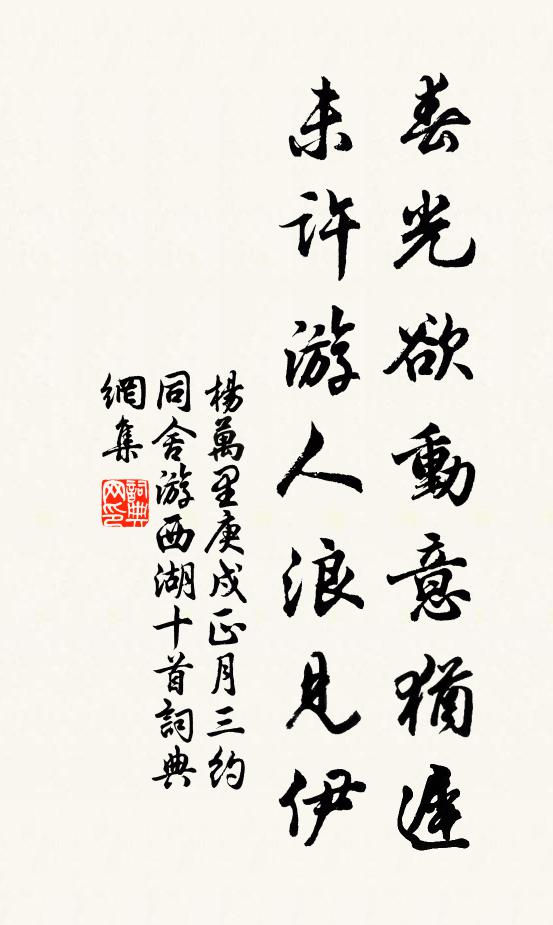 春光欲動意猶遲
未許游人浪見伊
楊萬里庚戌正月三約
同舍游西湖十首詞典
網集
詞典網印